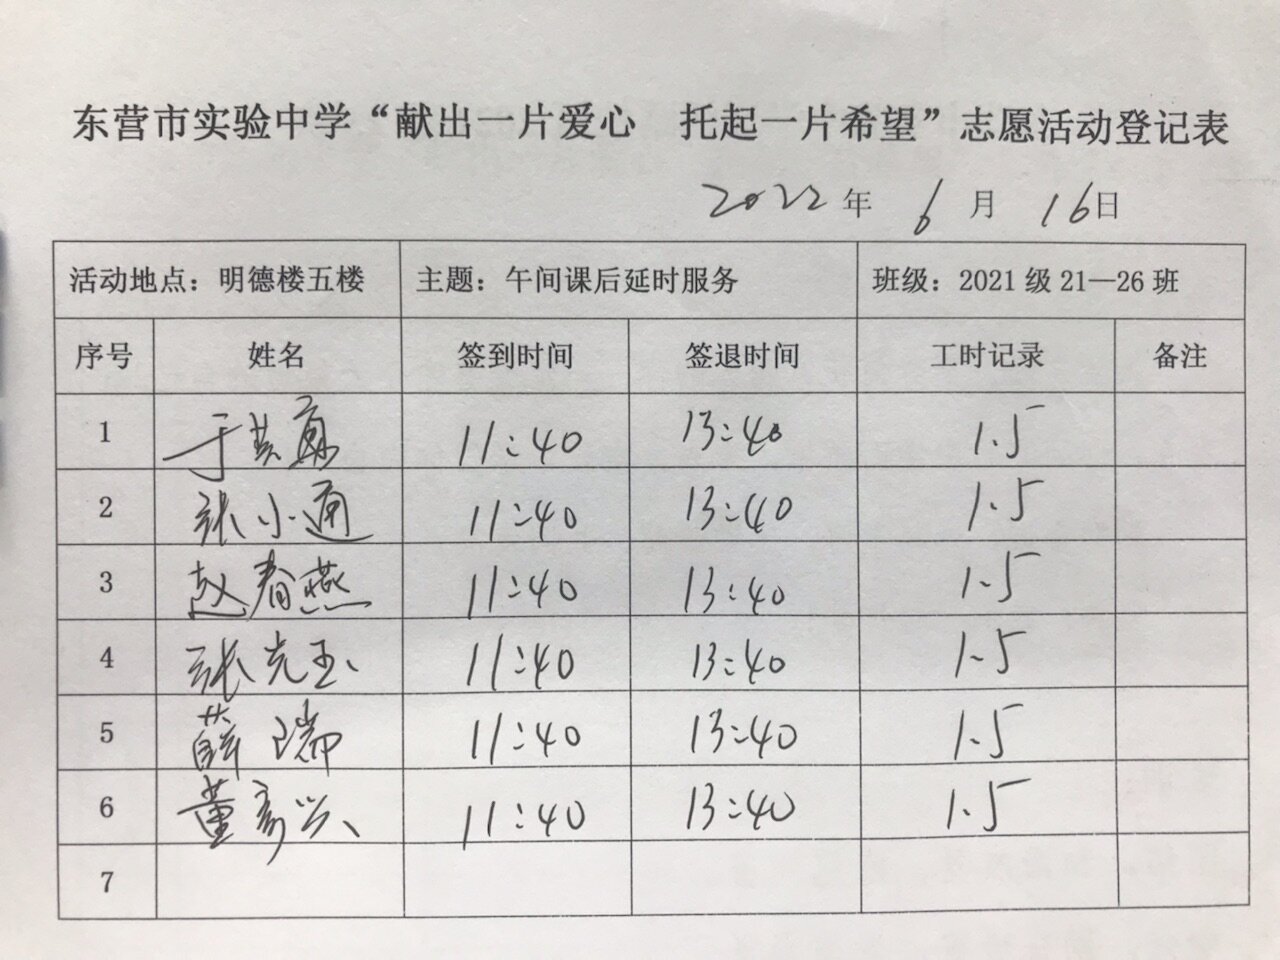 东营市实验中学“献出一片爱心 托起一片希望”志愿活动登记表
2022年 6月 16日
活动地点：明德楼五楼 主题：午间课后延时服务 班级：2021级21—26班
序号 姓名 签到时间 签退时间 工时记录 备注
1 于 11:40 13:40 1.5
2 张小通 11:40 13:40 1.5
3 赵春燕 11:40 13:40 1.5
4 张克玉 11:40 13:40 1.5
5 薛瑞 11:40 13:40 1.5
6 董彦兴 11:40 13:40 1.5
7